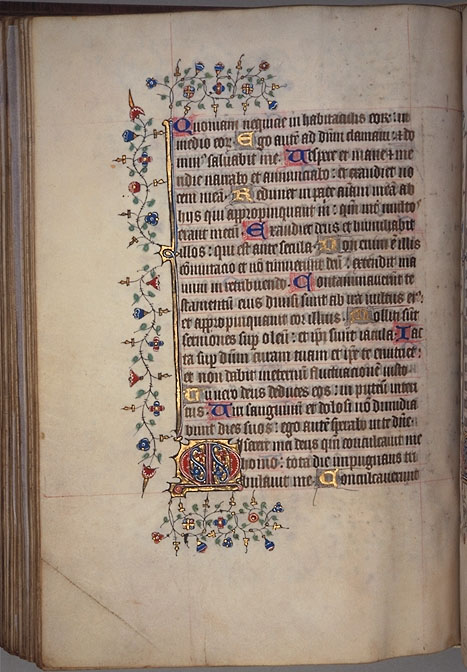 Quoniam nequicie in habitaculis eorꝫ: in
medio eoꝝ. Ego autē ad dūm clamaui: ⁊ do
minꝰ saluabit me. Vespere et mane ⁊ me
ridie narrabo et annunciabo: et exaudiet uo
cem meā. Redimet in pace aīam meā ab
hijs qui appropinquant m̄: qm̄ int̄ multos
erant mecū. Exaudiet deus et humiliabit
illos: qui est ante secula. Non enim ē illis
cōmutatio et nō timuerunt deū: extendit ma
num in retribuendo. Contaminauerūt te
stamentum eius diuisi sunt ab ira uultus eiꝰ:
et appropinquauit cor illius. Molliti sūt
sermones suꝑ oleū: et ip̄i sunt iacula. Iac
ta suꝑ dūm curam tuam et ip̄e te enutriet:
et non dabit in eternū fluctuacionē iusto.
Tu uero deus deduces eos: in puteū interi
tus. Viri sanguinū et dolosi nō dimidia
bunt dies suos: ego autē sperabo in te dūe.
Miserere mei deus qm̄ conculcauit me
homo: tota die impugnans tri
bulauit me. Conculcauerunt